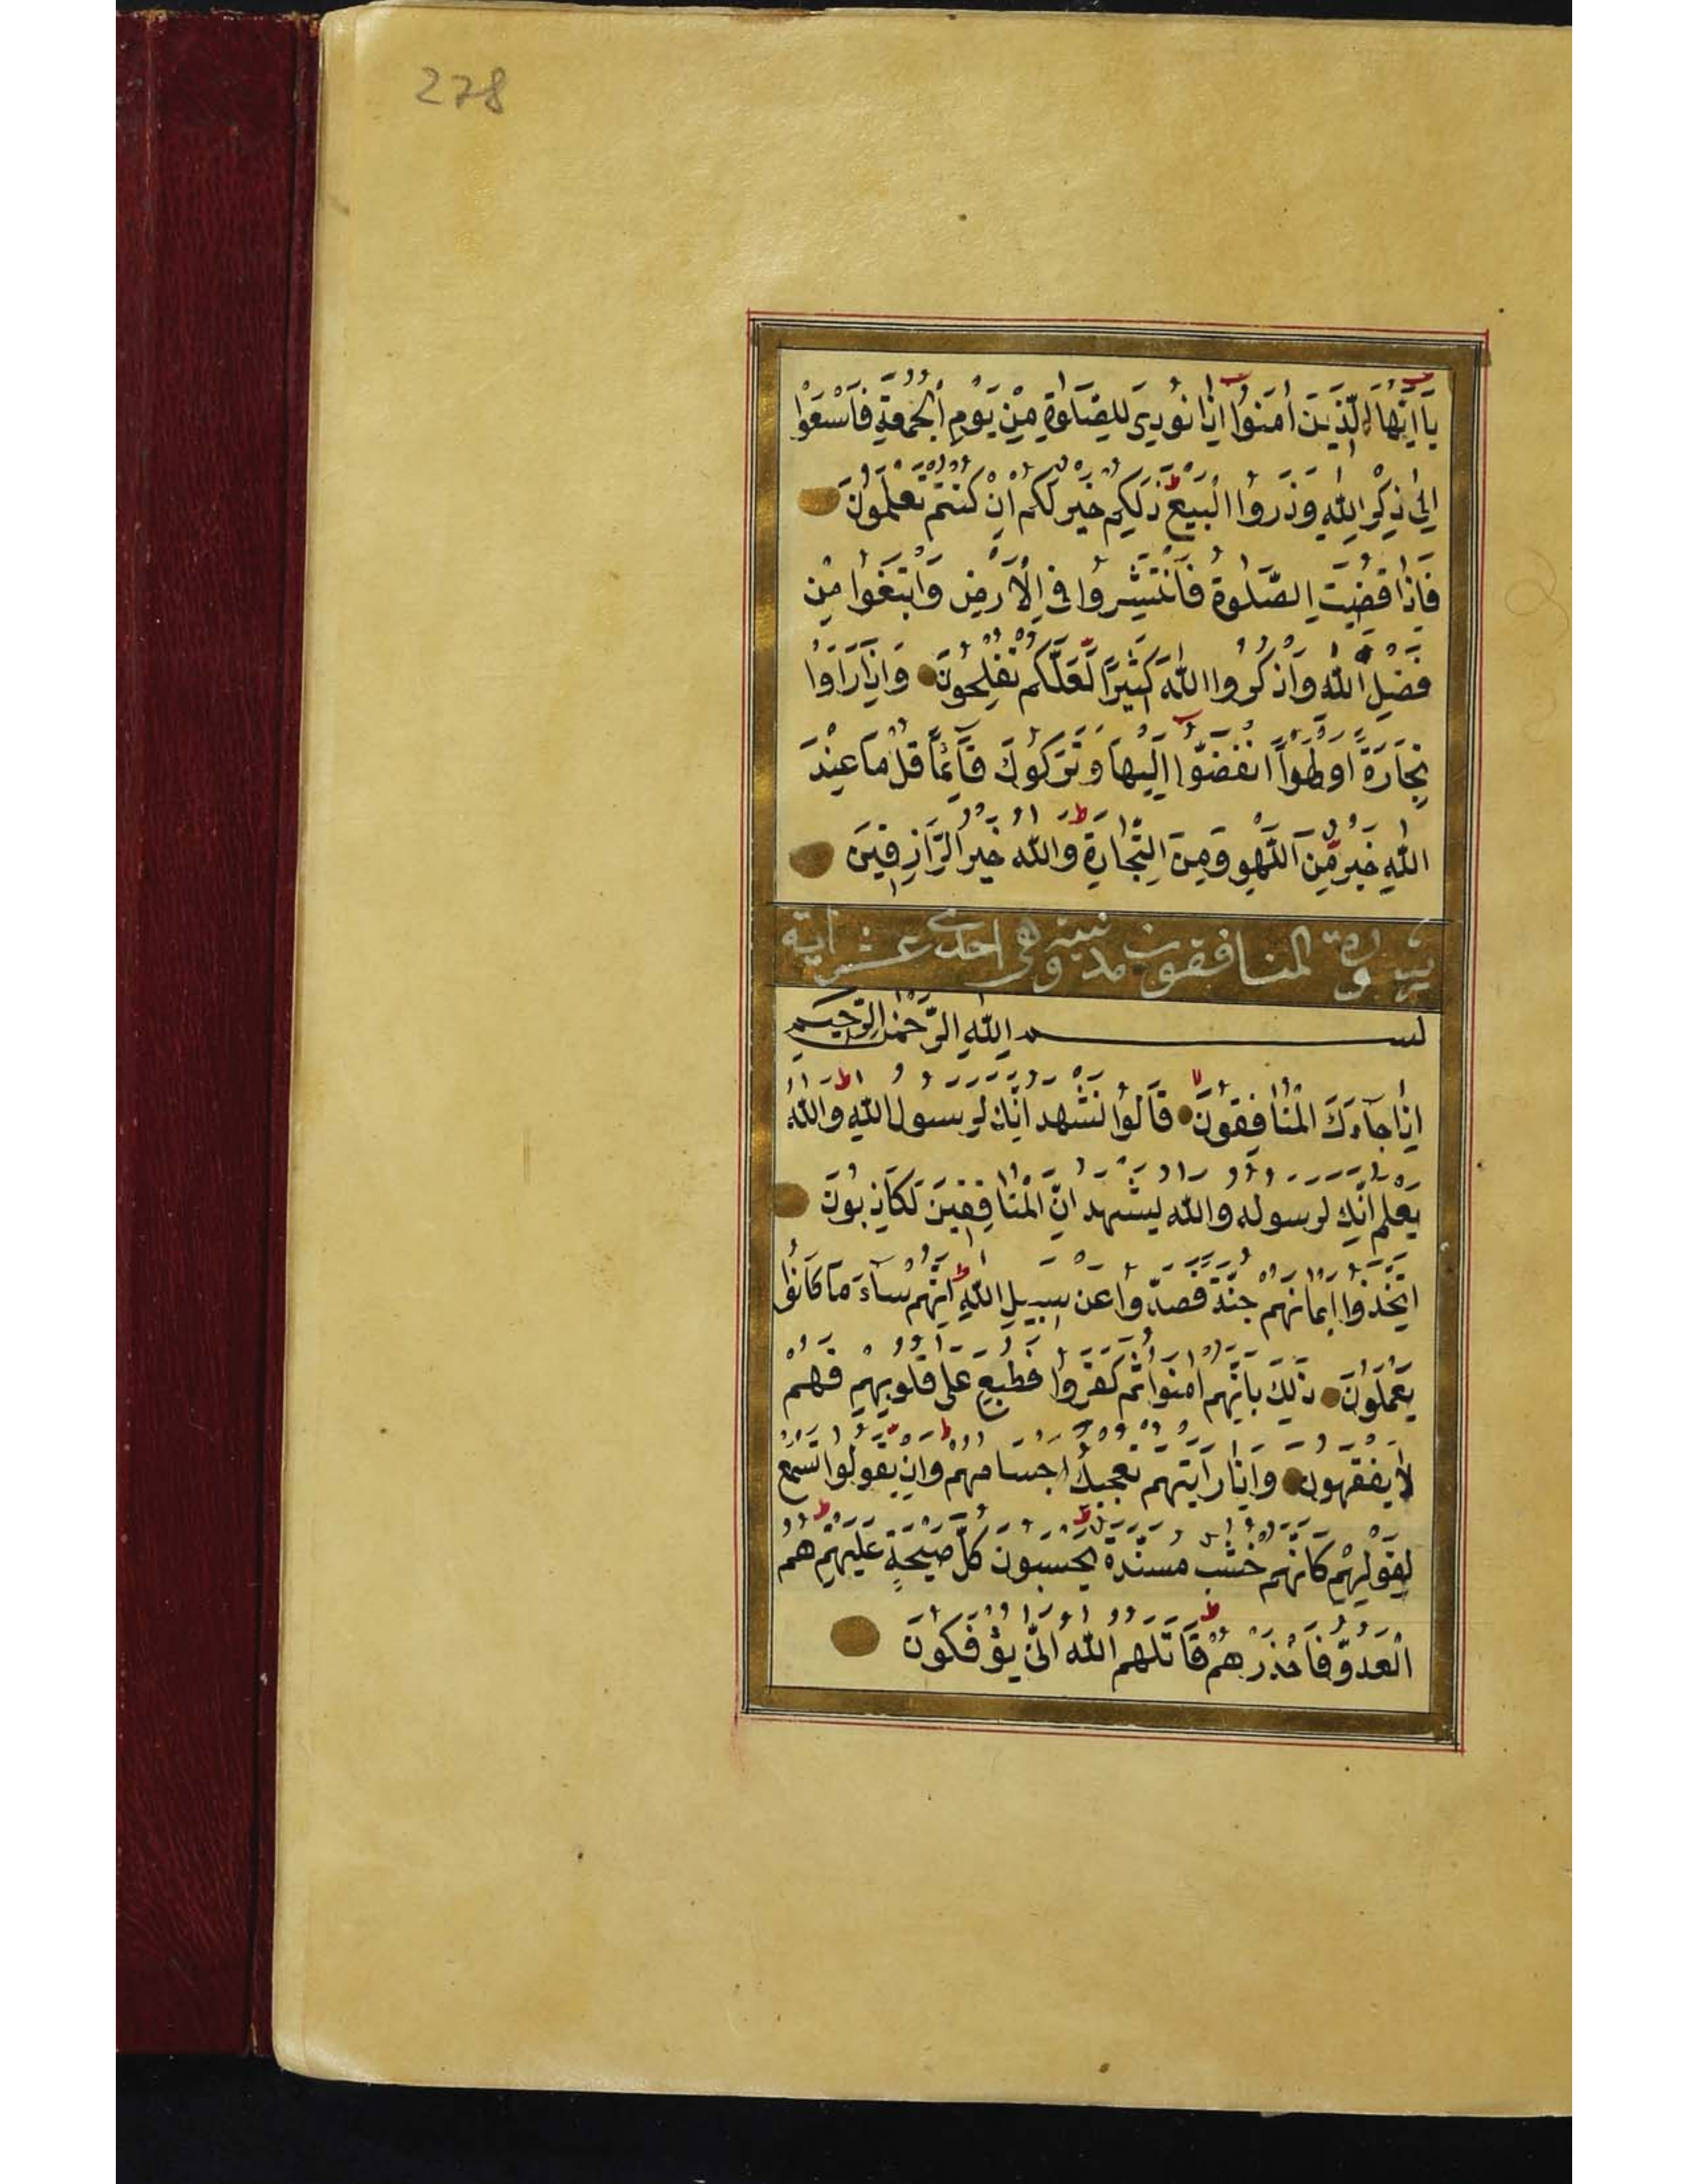 278
يَا اَيُّهَا الَّذِينَ اٰمَنُوا اِذَا نُودِىَ لِلصَّلٰوةِ مِنْ يَوْمِ الْجُمُعَةِ فَاسْعَوْا
اِلٰى ذِكْرِ اللّٰهِ وَذَرُوا الْبَيْعَ ذٰلِكُمْ خَيْرٌ لَكُمْ اِنْ كُنْتُمْ تَعْلَمُونَ
فَاِذَا قُضِيَتِ الصَّلٰوةُ فَانْتَشِرُوا فِى الْاَرْضِ وَابْتَغُوا مِنْ
فَضْلِ اللّٰهِ وَاذْكُرُوا اللّٰهَ كَثِيرًا لَعَلَّكُمْ تُفْلِحُونَ وَاِذَا رَاَوْا
تِجَارَةً اَوْ لَهْوًا انْفَضُّوا اِلَيْهَا وَتَرَكُوكَ قَآئِمًا قُلْ مَا عِنْدَ
اللّٰهِ خَيْرٌ مِنَ اللَّهْوِ وَمِنَ التِّجَارَةِ وَاللّٰهُ خَيْرُ الرَّازِقِينَ
سورة المنافقون مدنية وهى احدى عشر اية
بسم اللّٰهِ الرَّحْمٰنِ الرَّحِيمِ
اِذَا جَآءَكَ الْمُنَافِقُونَ قَالُوا نَشْهَدُ اِنَّكَ لَرَسُولُ اللّٰهِ وَاللّٰهُ
يَعْلَمُ اِنَّكَ لَرَسُولُهُ وَاللّٰهُ يَشْهَدُ اِنَّ الْمُنَافِقِينَ لَكَاذِبُونَ
اِتَّخَذُوا اَيْمَانَهُمْ جُنَّةً فَصَدُّوا عَنْ سَبِيلِ اللّٰهِ اِنَّهُمْ سَآءَ مَا كَانُوا
يَعْمَلُونَ ذٰلِكَ بِاَنَّهُمْ اٰمَنُوا ثُمَّ كَفَرُوا فَطُبِعَ عَلٰى قُلُوبِهِمْ فَهُمْ
لَا يَفْقَهُونَ وَاِذَا رَاَيْتَهُمْ تُعْجِبُكَ اَجْسَامُهُمْ وَاِنْ يَقُولُوا تَسْمَعْ
لِقَوْلِهِمْ كَاَنَّهُمْ خُشُبٌ مُسَنَّدَةٌ يَحْسَبُونَ كُلَّ صَيْحَةٍ عَلَيْهِمْ هُمُ
الْعَدُوُّ فَاحْذَرْهُمْ قَاتَلَهُمُ اللّٰهُ اَنّٰى يُؤْفَكُونَ